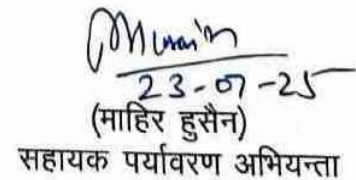 23-07-25
(माहिर हुसैन)
सहायक पर्यावरण अभियन्ता